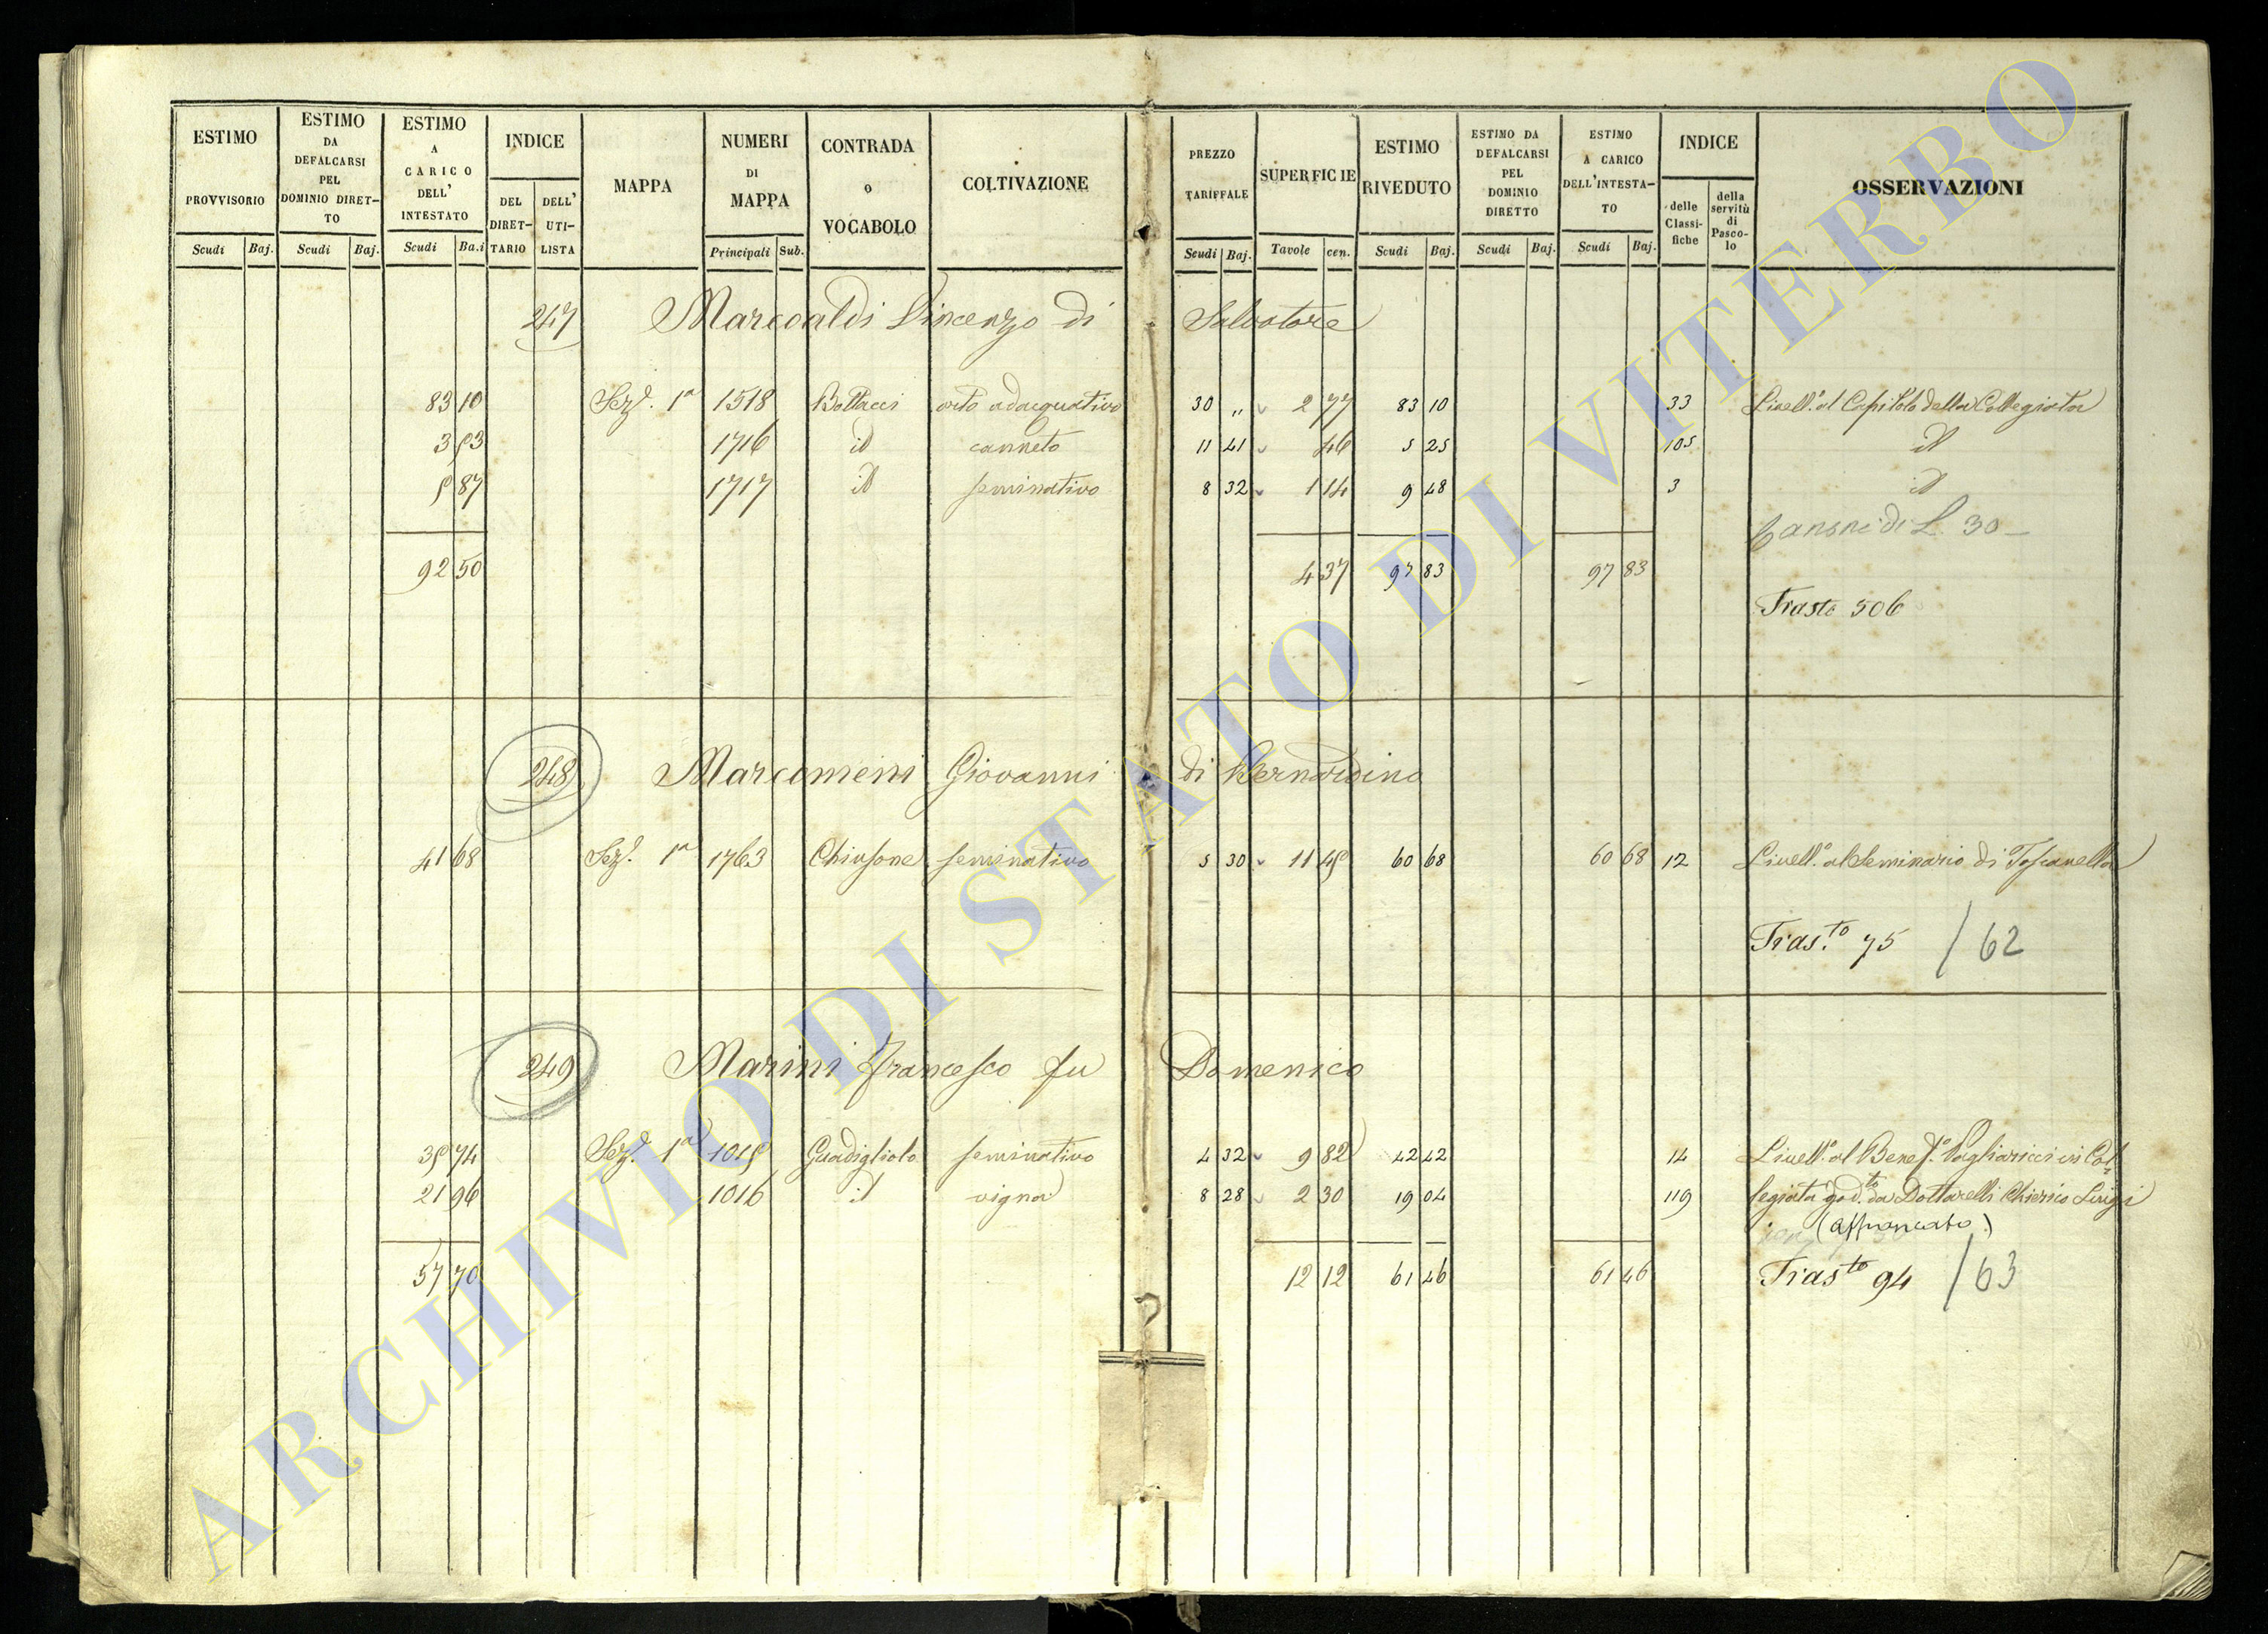 ESTIMO PROVVISORIO Scudi Baj.
ESTIMO DA DEFALCARSI PEL DOMINIO DIRET-TO Scudi Baj.
ESTIMO A CARICO DELL' INTESTATO Scudi Ba.i
INDICE DEL DIRET-TARIO DELL' UTI-LISTA
MAPPA
NUMERI DI MAPPA Principali Sub.
CONTRADA o VOCABOLO
COLTIVAZIONE
PREZZO TARIFFALE Scudi Baj.
SUPERFICIE Tavole cen.
ESTIMO RIVEDUTO Scudi Baj.
ESTIMO DA DEFALCARSI PEL DOMINIO DIRETTO Scudi Baj.
ESTIMO A CARICO DELL'INTESTA-TO Scudi Baj.
INDICE delle Classi-fiche della servitù di Pasco-lo
OSSERVAZIONI
247 Marcoaldi Vincenzo di Salvatore
83 10 Sez.e 1a 1518 Bottacci orto adacquativo 30 „ 2 77 83 10 33 Livell.o al Capitolo della Collegiata
3 53 1716 id canneto 11 41 46 5 25 105 id
5 87 1717 id seminativo 8 32 1 14 9 48 3 id
Canone di L. 30 –
92 50 4 37 97 83 97 83
Trasto 506
248 Marcomeni Giovanni di Bernardino
41 68 Sez.e 1a 1763 Chiusone seminativo 5 30 11 45 60 68 60 68 12 Livell.o al Seminario di Toscanella
Tras.to 75 / 62
249 Marini Francesco fu Domenico
35 74 Sez.e 1a 1015 Guadigliolo seminativo 4 32 9 82 42 42 14 Livell.o al Benef.o Pagliaricci in Col-
21 96 1016 id vigna 8 28 2 30 19 04 119 legiata god.to da Dottarelli Chierico Luigi
(affrancato)
57 70 12 12 61 46 61 46 Trasto 94 / 63
ARCHIVIO DI STATO DI VITERBO